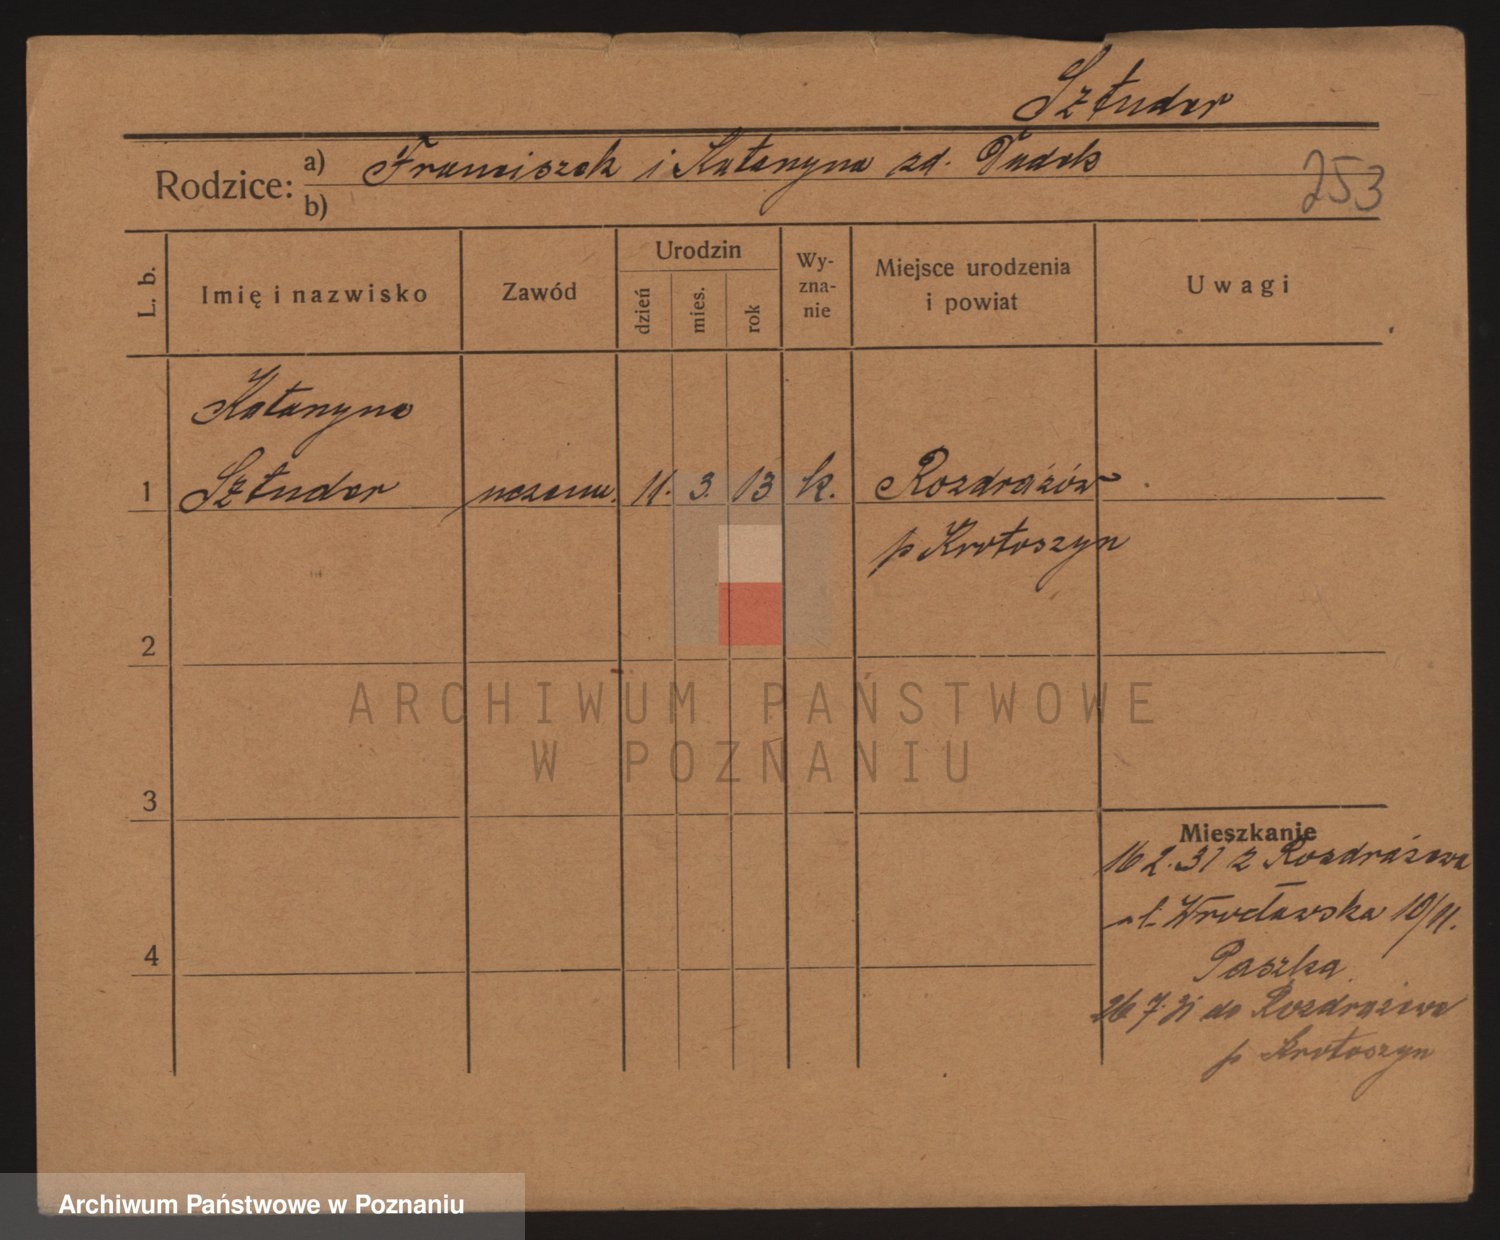 Sztuder
Rodzice: a) Franciszek i Katarzyna zd. Dudek
b)
253
L. b.
Imię i nazwisko
Zawód
Urodzin
dzień
mies.
rok
Wy-
zna-
nie
Miejsce urodzenia
i powiat
Uwagi
Katarzyna
1 Sztuder uczenn. 11. 3. 13 k. Rozdrażów
p Krotoszyn
2
ARCHIWUM PAŃSTWOWE
W POZNANIU
3
Mieszkanie
16 2. 31 z Rozdrażewa
ul. Wrocławska 10/11.
Paszka
26 7. 31 do Rozdrażewa
4
p Krotoszyn
Archiwum Państwowe w Poznaniu